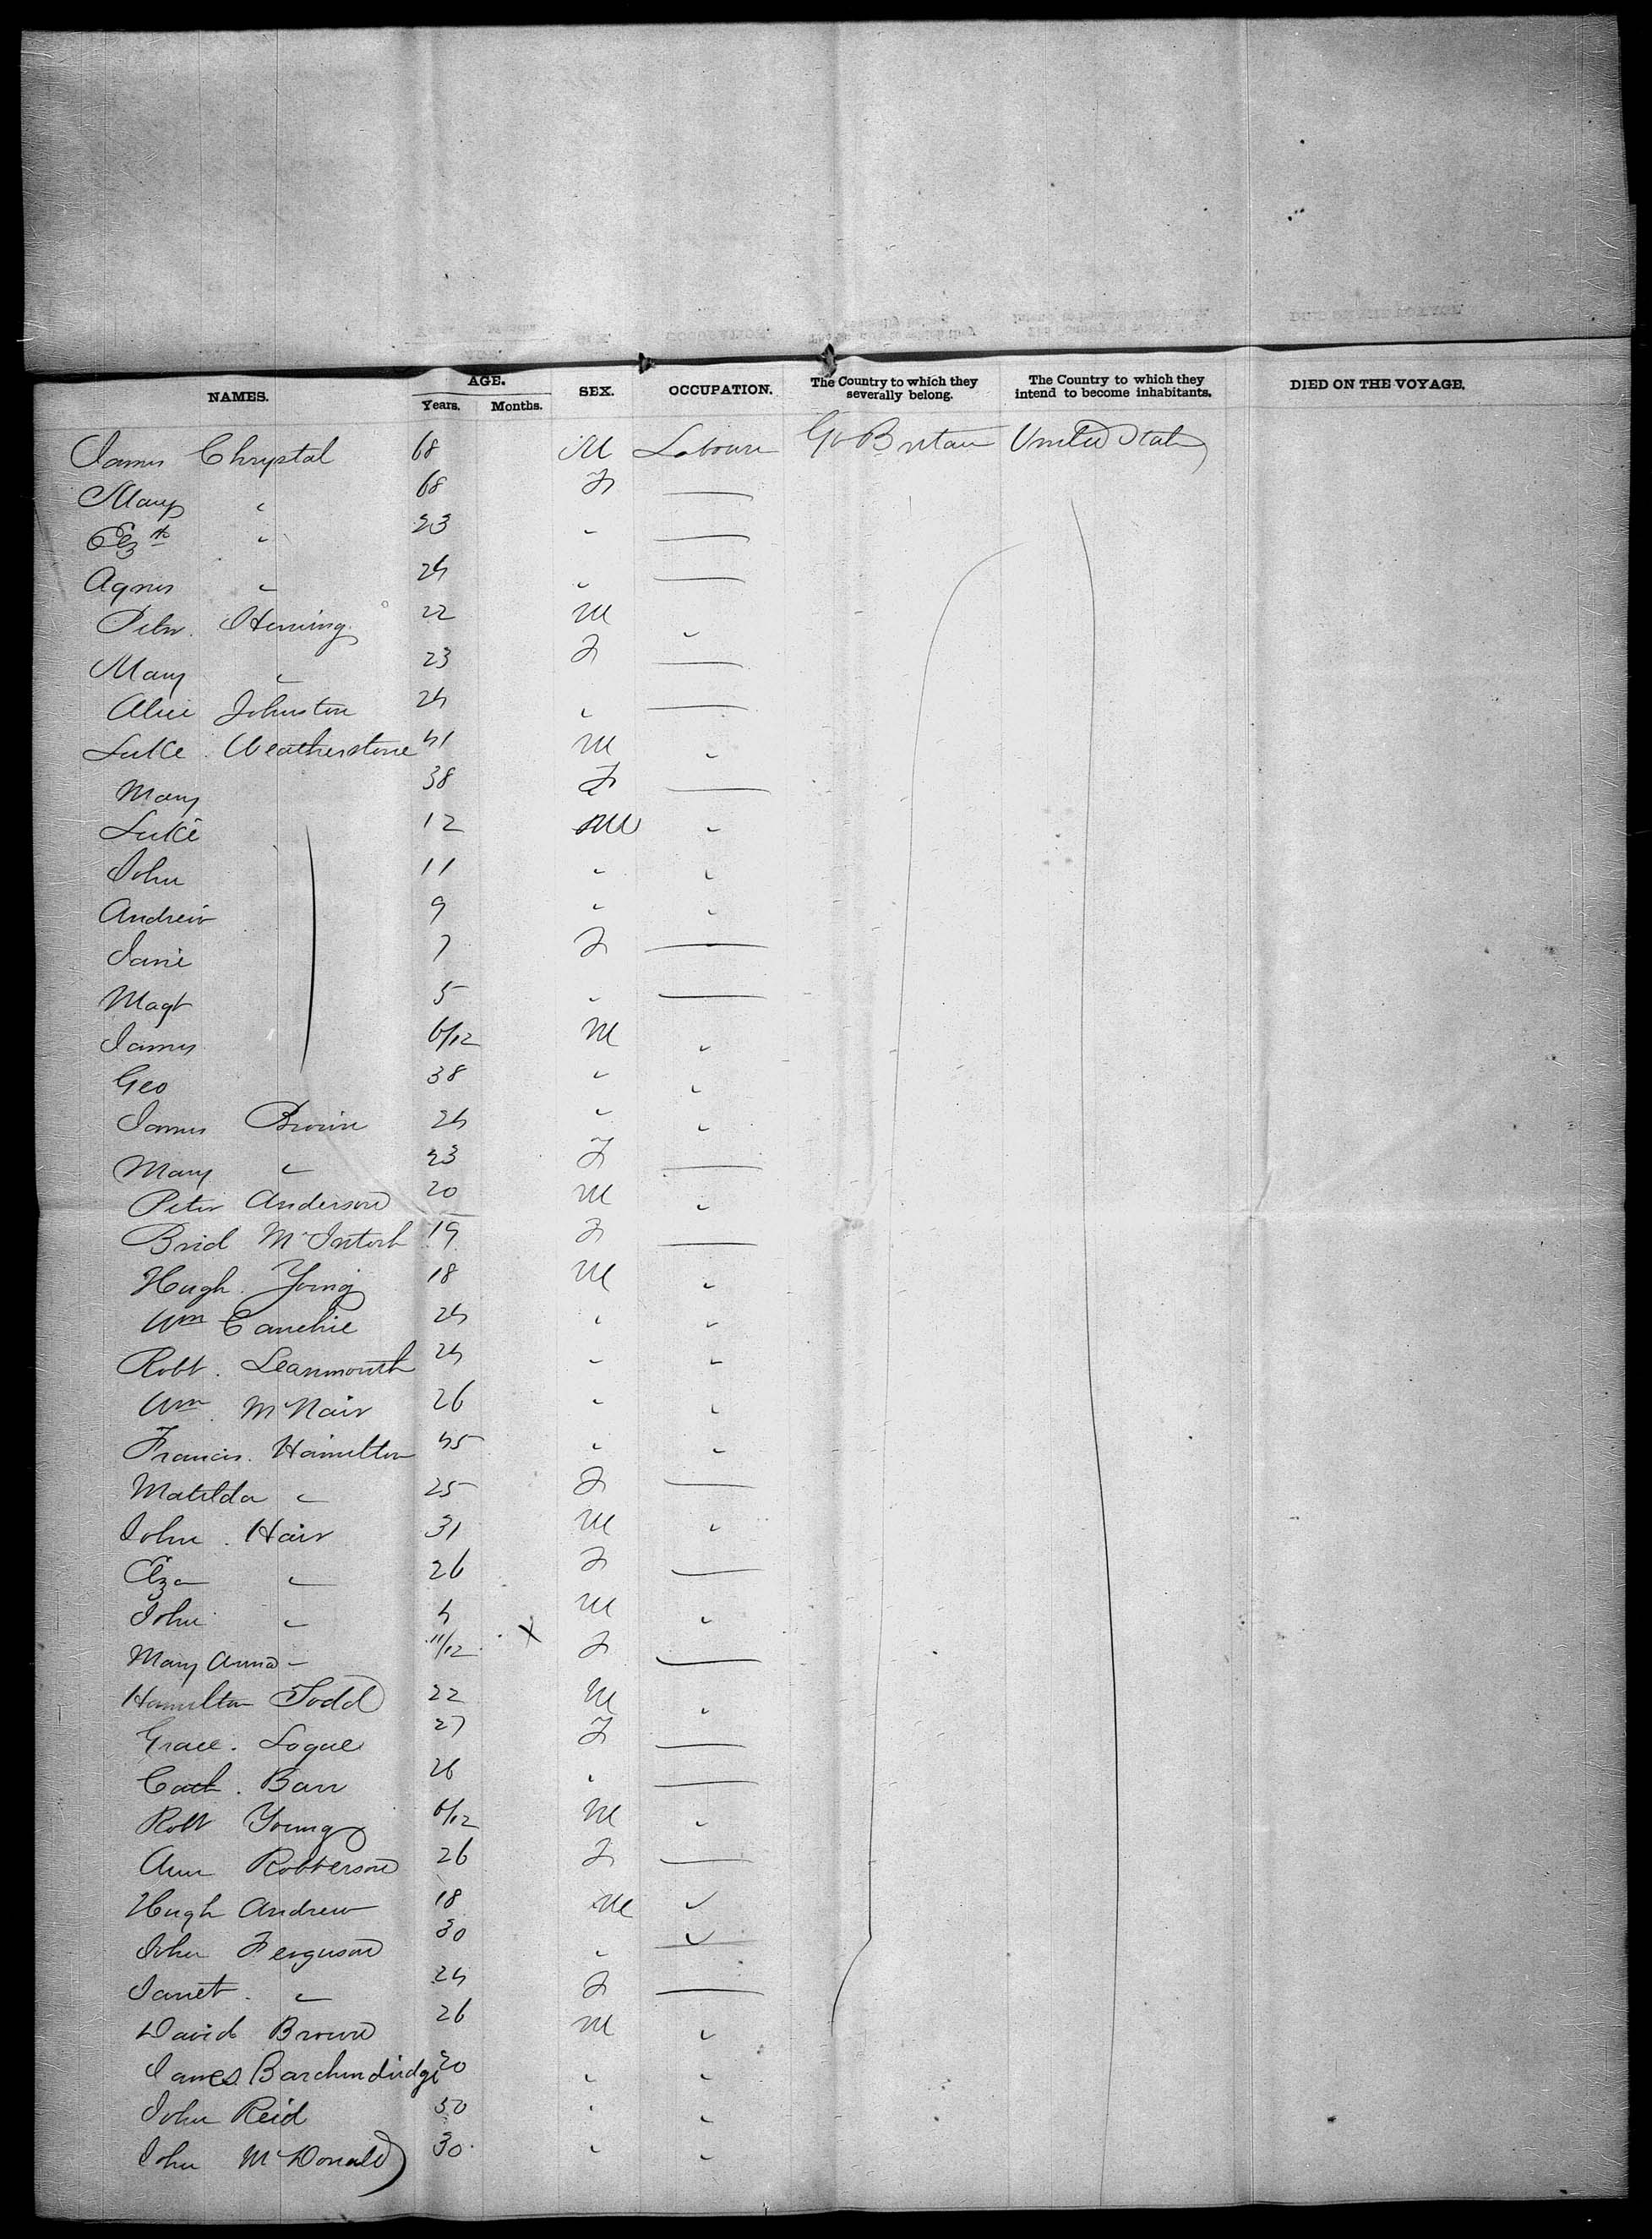 NAMES. AGE. Years. Months. SEX. OCCUPATION. The Country to which they severally belong. The Country to which they intend to become inhabitants. DIED ON THE VOYAGE.
James Chrystal 68 M Labourer Gt Britain United States
Mary " 68 F —
Elzth " 23 " —
Agnes " 24 " —
Peter 22 M "
Mary " 23 F —
Alice Johnston 24 " —
Luke Weatherstone 41 M "
Mary 38 F —
Luke 12 M "
John 11 " "
Andrew 9 " "
Jane 7 F —
Magt 5 " —
James 6/12 M "
Geo 38 " "
James Brown 24 " "
Mary " 23 F —
Peter Anderson 20 M "
Brid McIntosh 19 F —
Hugh Young 18 M "
Wm 24 " "
Robt Learmouth 24 " "
Wm McNair 26 " "
Francis Hamilton 45 " "
Matilda " 25 F —
John Hair 31 M "
Elza " 26 F —
John " 4 M "
Mary Anna " 11/12 X F —
Hamilton Todd 22 M "
Grace Logue 27 F —
Cath Barr 26 " —
Robt Young 6/12 M "
Ann Robberson 26 F —
Hugh Andrew 18 M "
John Ferguson 30 " "
Janet " 24 F —
David Brown 26 M "
James 20 " "
John Reid 50 " "
John McDonald 30 " "